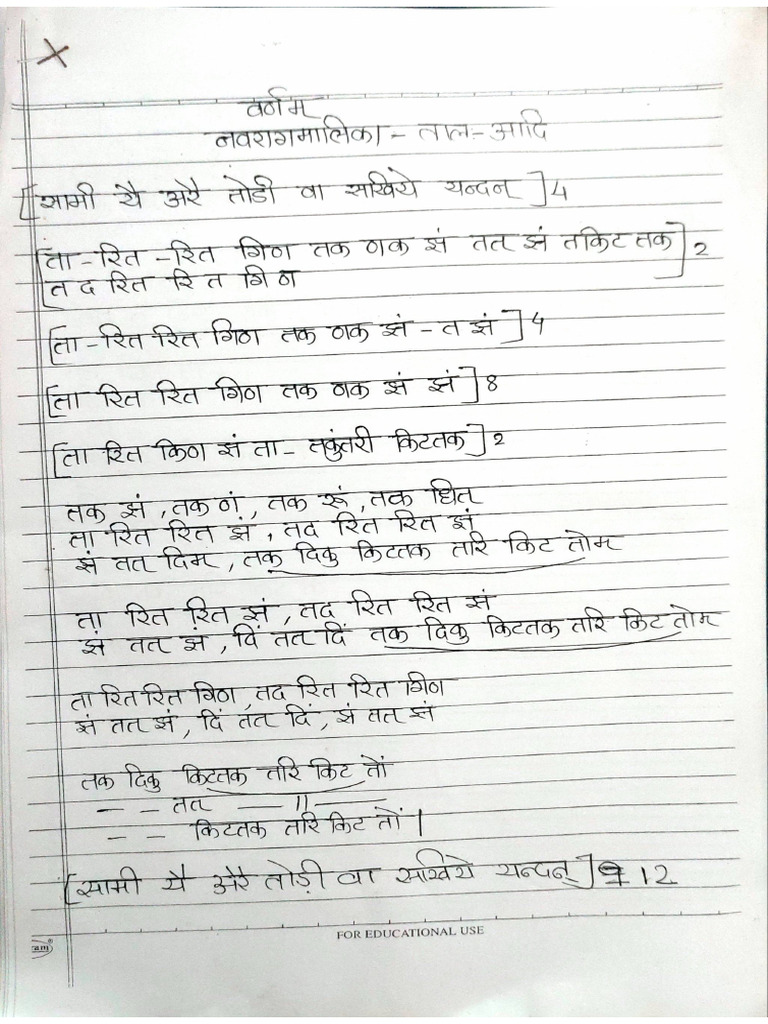 वर्णम
नवरागमालिका - ताल - आदि
[सामी यै अरै तोडी वा सखिये यन्दन्] 4
[ता - रित - रित गिण तक णक झं तत झं तकिट तक
त द रित रि त गि ण] 2
[ता - रित रित गिण तक णक झं - त झं] 4
[ता रित रित गिण तक णक झं झं] 8
[ता रित किण झं ता - तकुंतरी किटतक] 2
तक झं , तक णं , तक रूं , तक धित
ता रित रित झं , तद रित रित झं
झं तत दिम , तक दिकु किटतक तरि किट तोम
ता रित रित झं , तद रित रित झं
झं तत झं , दिं तत दिं तक दिकु किटतक तरि किट तोम
ता रित रित गिण , तद रित रित गिण
झं तत झं , दिं तत दिं , झं तत झं
तक दिकु किटतक तरि किट तों
— - तत — 11 —
— - किटतक तरि किट तों |
[सामी यै अरै तोड़ी वा सखिये यन्दन्] 12
FOR EDUCATIONAL USE
am